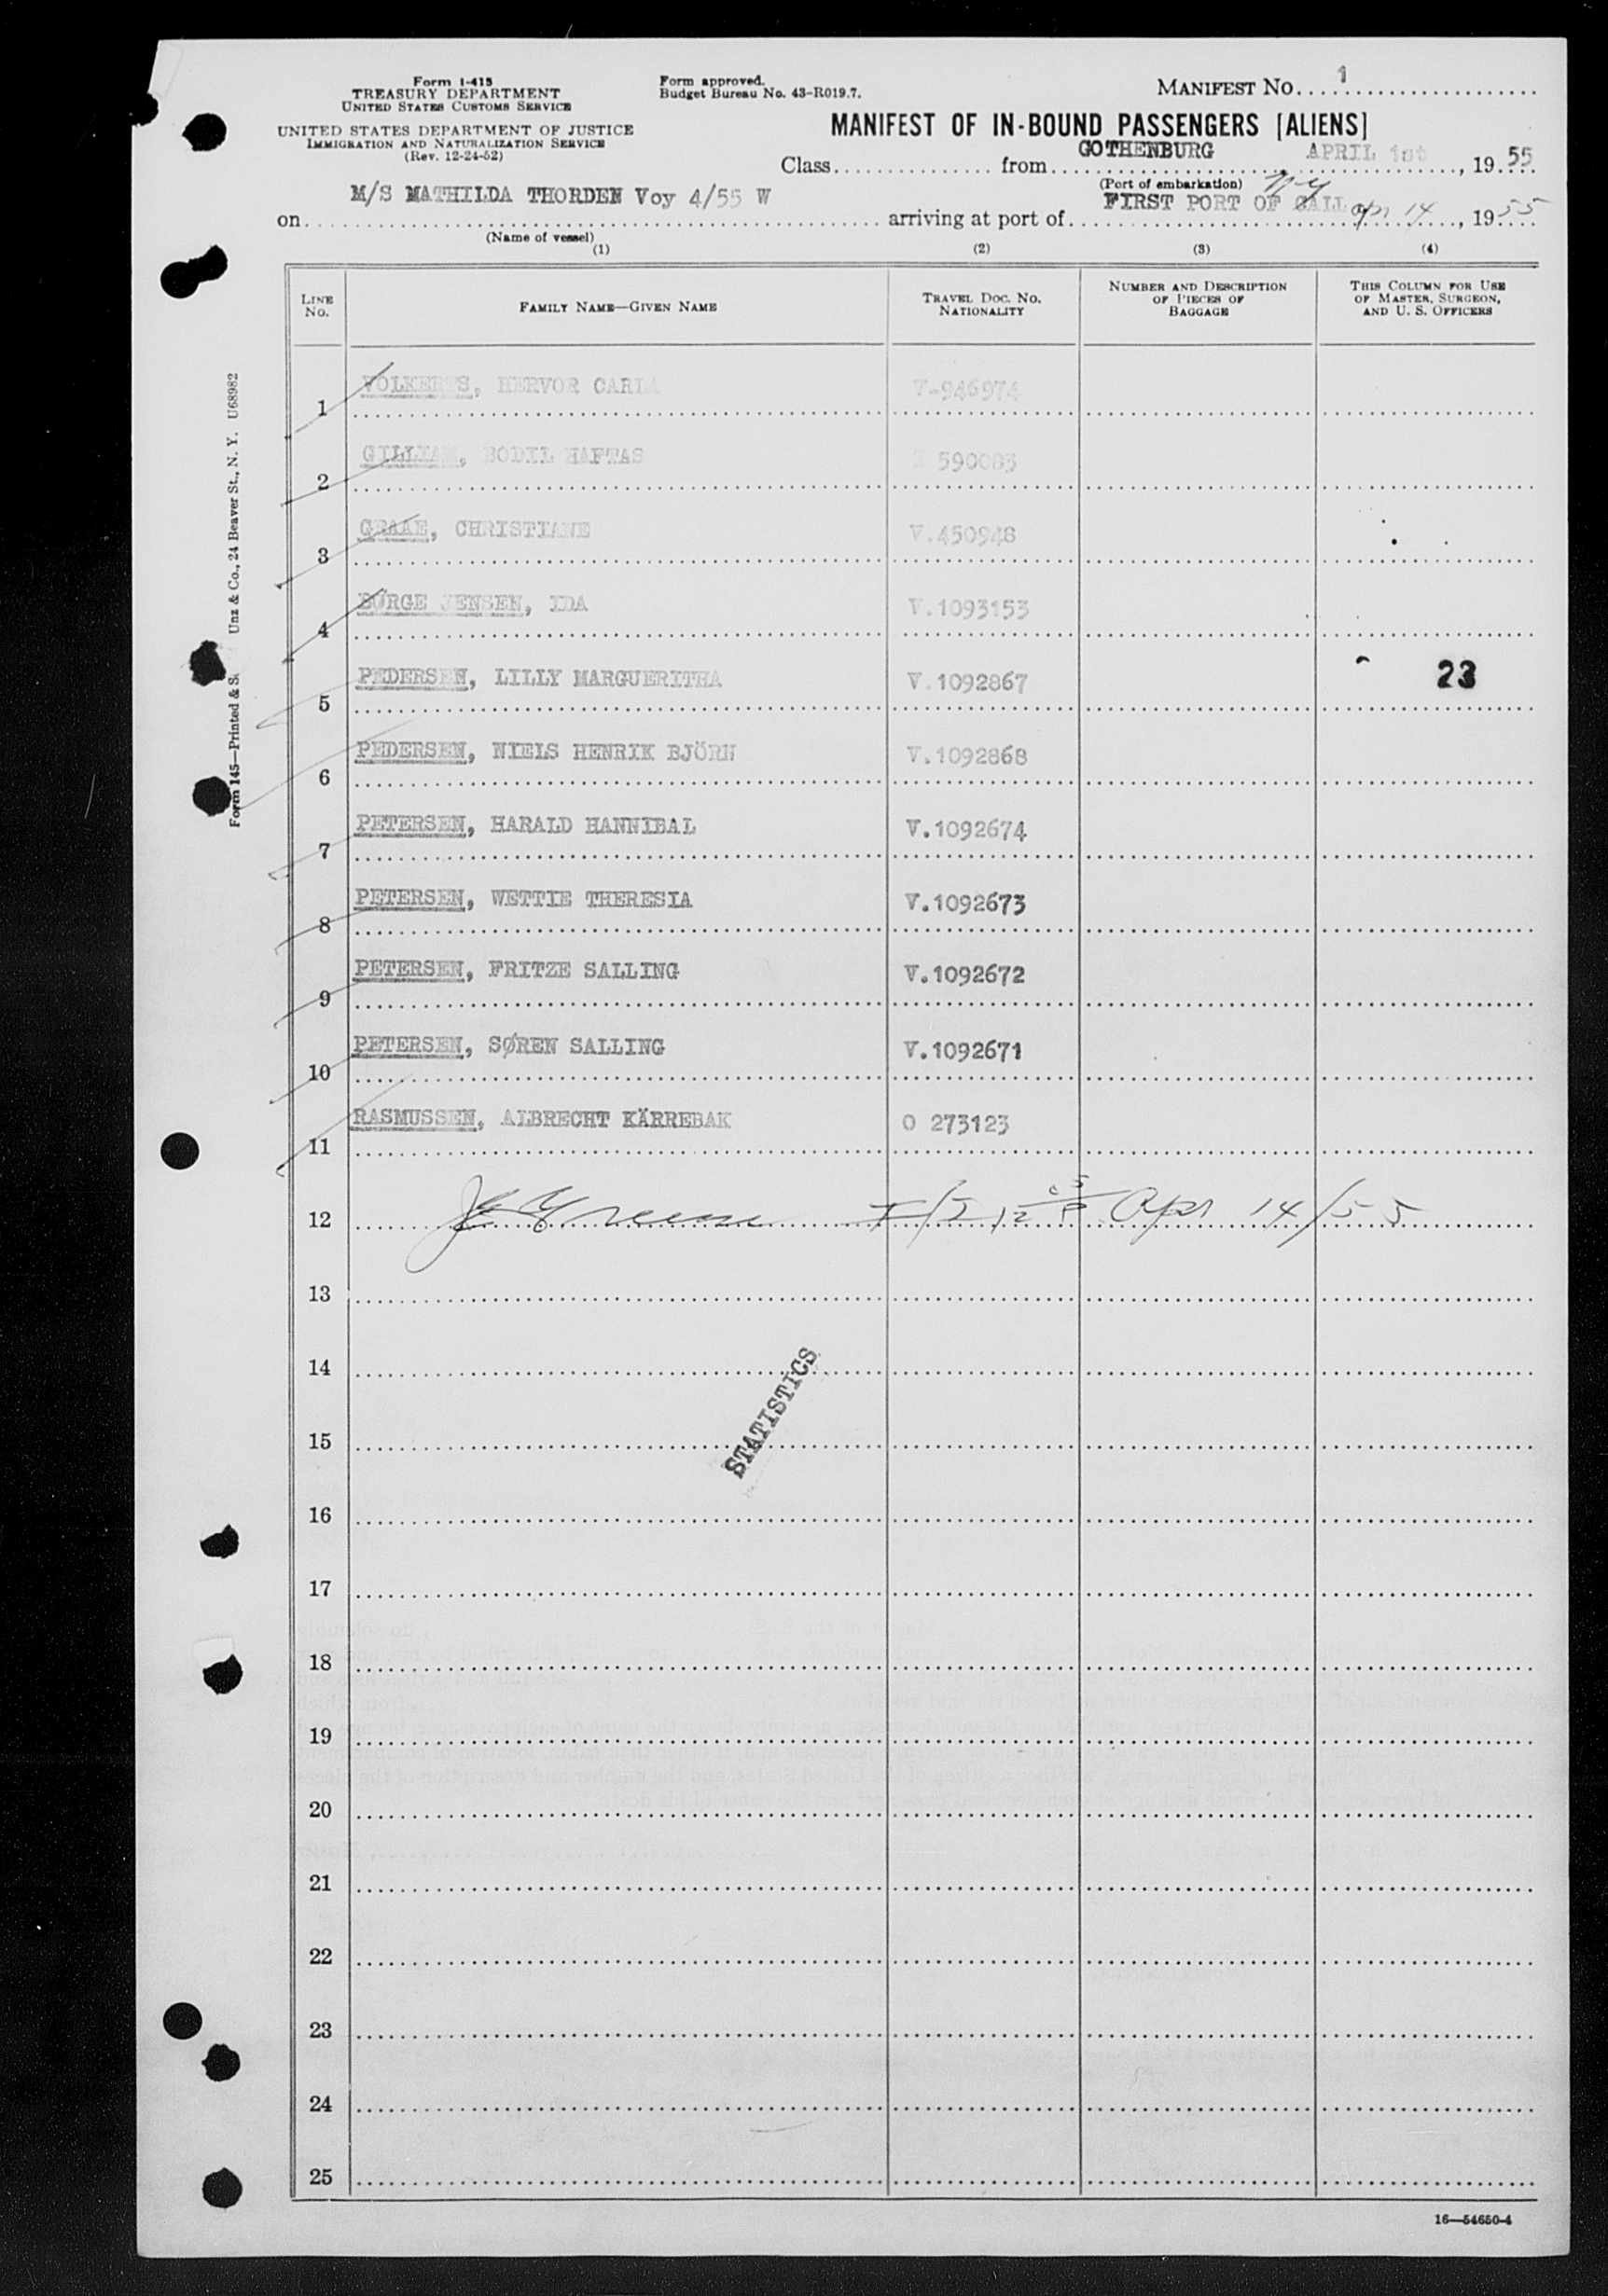 Form I-415
TREASURY DEPARTMENT
UNITED STATES CUSTOMS SERVICE
UNITED STATES DEPARTMENT OF JUSTICE
IMMIGRATION AND NATURALIZATION SERVICE
(Rev. 12-24-52)
Form approved.
Budget Bureau No. 43-R019.7.
MANIFEST NO. 1
MANIFEST OF IN-BOUND PASSENGERS [ALIENS]
Class from GOTHENBURG APRIL 1st, 1955
(Port of embarkation)
on M/S MATHILDA THORDEN Voy 4/55 W arriving at port of FIRST PORT OF CALL NY Apr 14, 1955
(Name of vessel)
(1) (2) (3) (4)
LINE NO. FAMILY NAME—GIVEN NAME TRAVEL DOC. NO. NATIONALITY NUMBER AND DESCRIPTION OF PIECES OF BAGGAGE THIS COLUMN FOR USE OF MASTER, SURGEON, AND U. S. OFFICERS
1 VOLKERTS, HERVOR CARLA V-946974
2 GILLEAM, BODIL HAFTAS 590083
3 GRAAE, CHRISTIANE V.450948
4 BØRGE JENSEN, IDA V.1093153
5 PEDERSEN, LILLY MARGUERITHA V.1092867 23
6 PEDERSEN, NIELS HENRIK BJÖRN V.1092868
7 PETERSEN, HARALD HANNIBAL V.1092674
8 PETERSEN, WETTIE THERESIA V.1092673
9 PETERSEN, FRITZE SALLING V.1092672
10 PETERSEN, SØREN SALLING V.1092671
11 RASMUSSEN, ALBRECHT KÄRREBAK O 273123
12 Apr 14/55
13
14
STATISTICS
15
16
17
18
19
20
21
22
23
24
25
16—54650-4
Form 145—Printed & S. Unz & Co., 24 Beaver St., N. Y. U68982